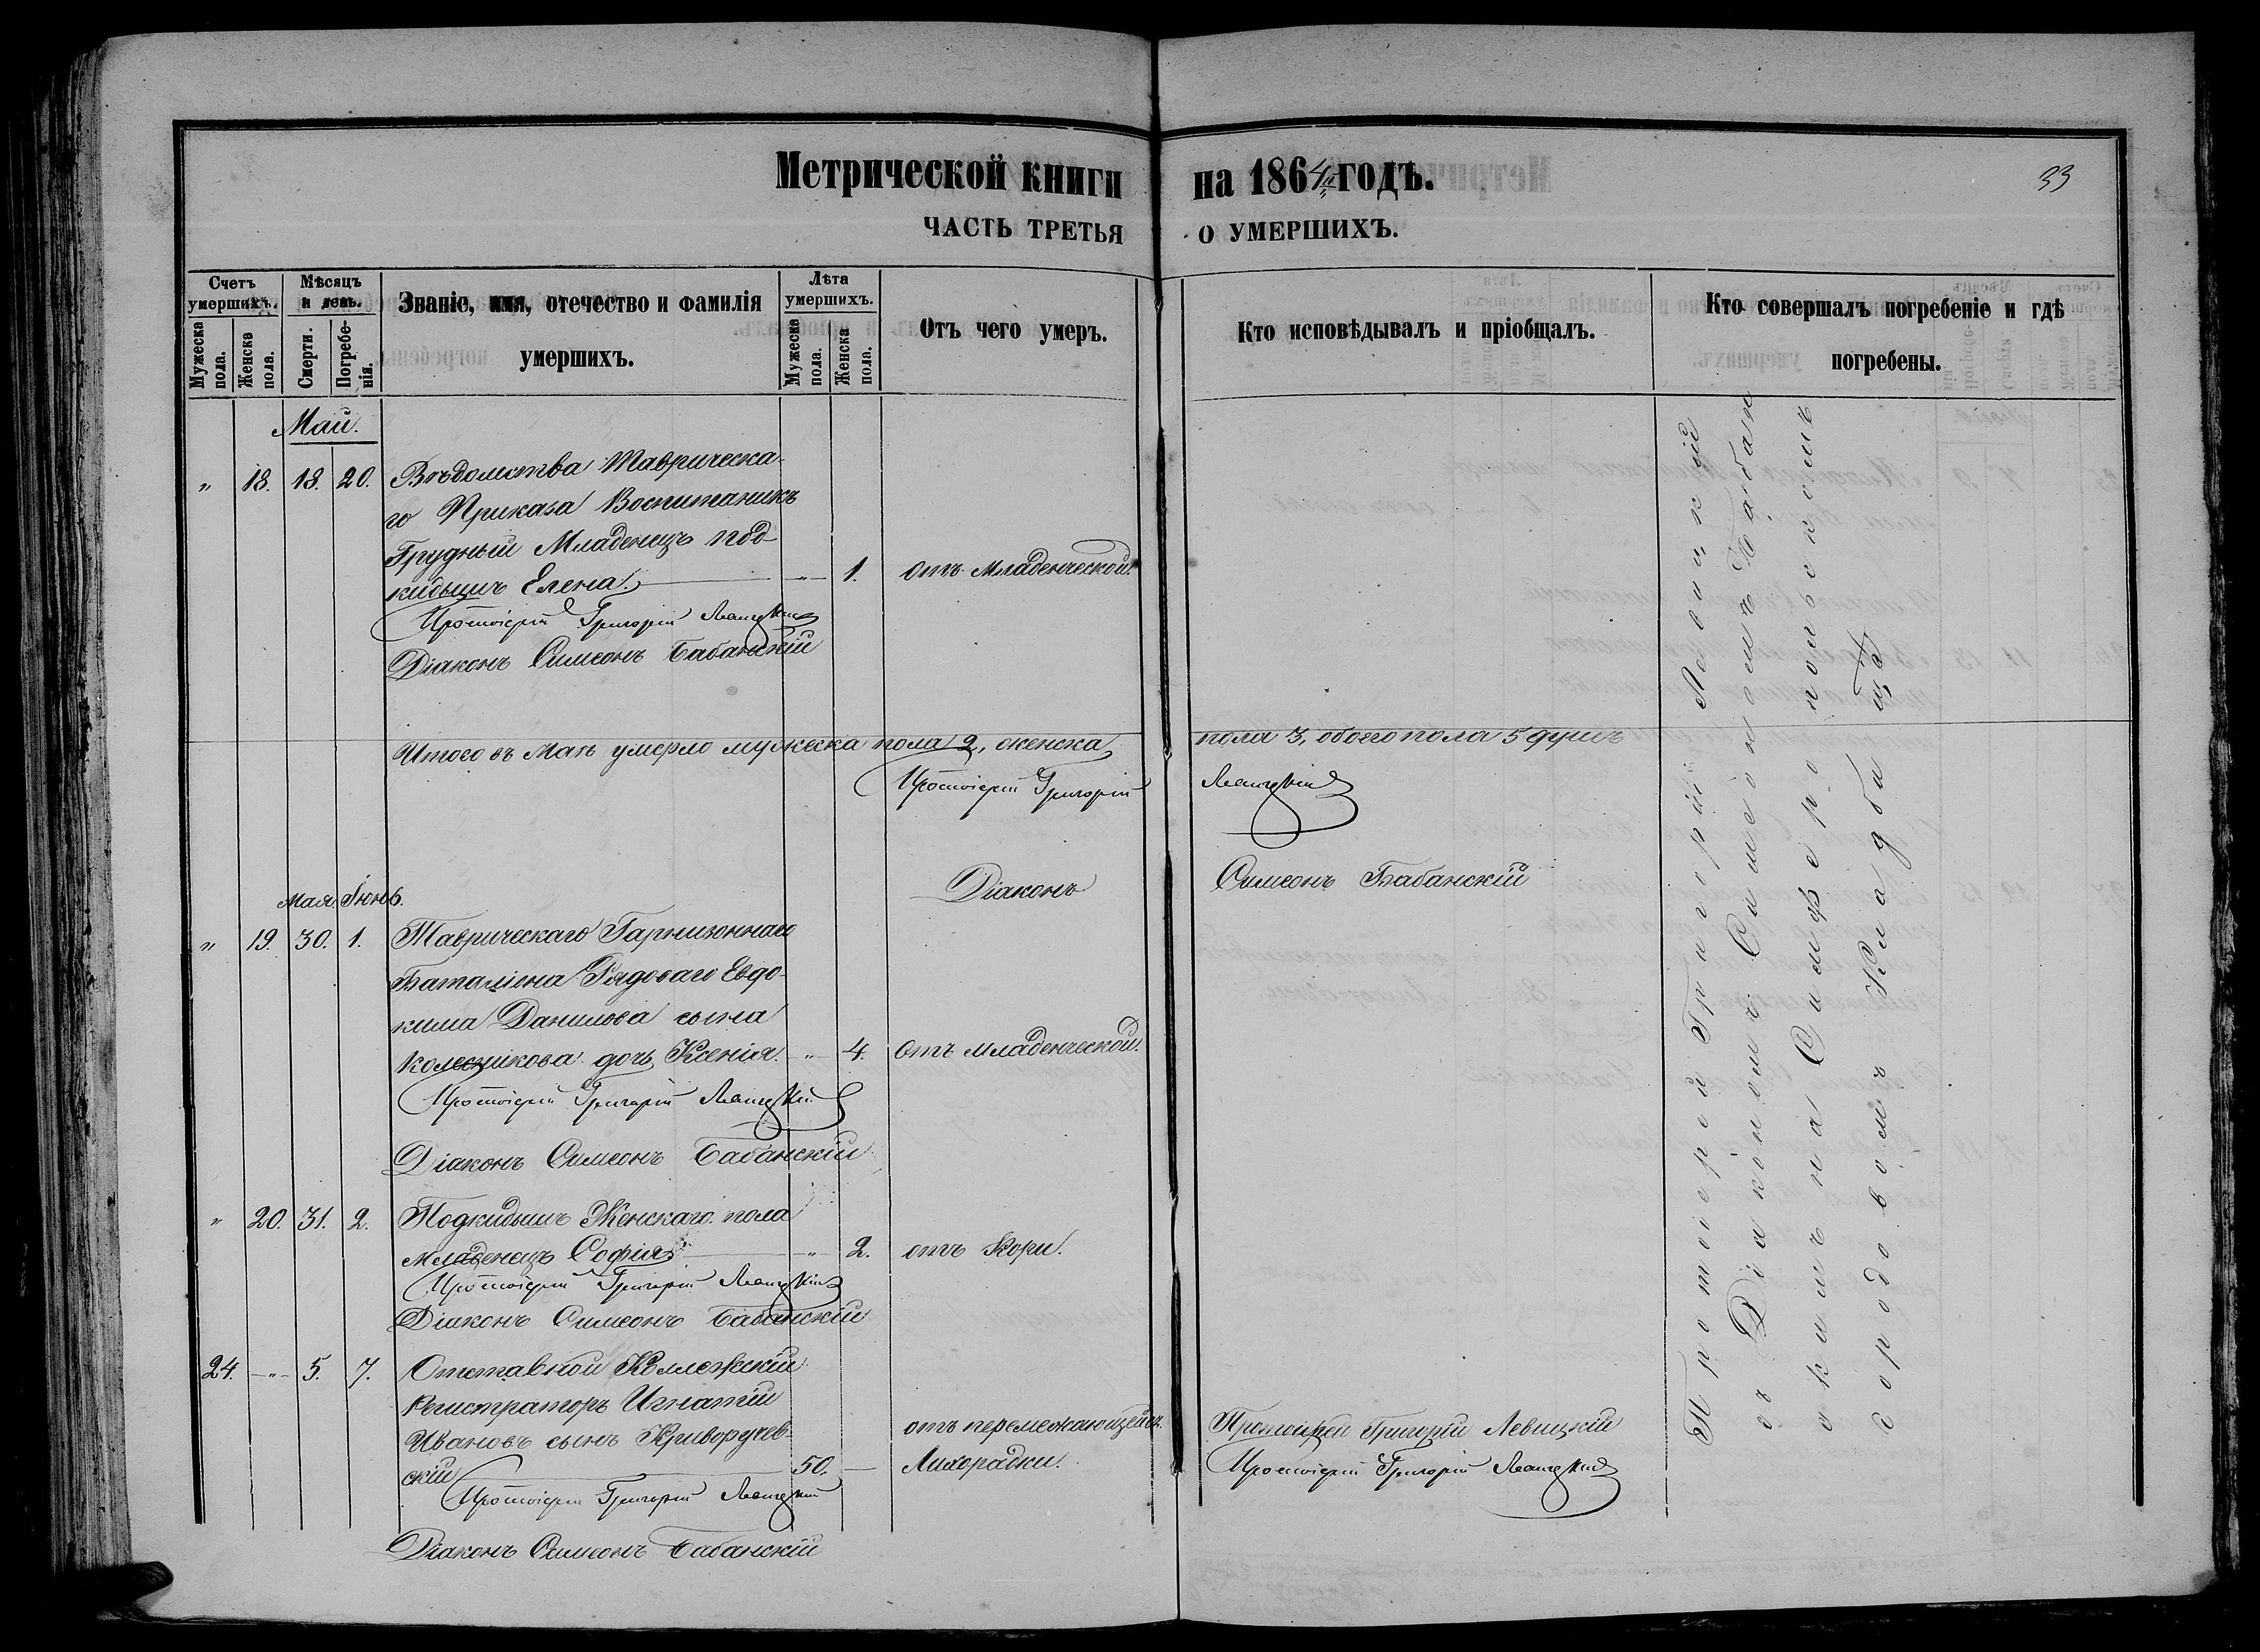 Метрической книги на 1864й годъ.
33
ЧАСТЬ ТРЕТЬЯ О УМЕРШИХЪ.
Счетъ умершихъ.
Мужеска пола.
Женска пола.
Мѣсяцъ и день.
Смерти.
Погребенія.
Званіе, имя, отечество и фамилія
умершихъ.
Лѣта умершихъ.
Мужеска пола.
Женска пола.
Отъ чего умеръ.
Кто исповѣдывалъ и пріобщалъ.
Кто совершалъ погребеніе и гдѣ
погребены.
Май.
" 18. 18. 20. Вѣдомства Таврическа-
го Приказа Воспитаникъ
Грудный Младенецъ под-
кидышъ Елена. " 1. отъ Младенческой.
Протоіерей Григорій Левицкій
Діаконъ Симеонъ Бабанскій
Итого въ Маѣ умерло мужеска пола 2, женска пола 3, обоего пола 5 душъ
Протоіерей Григорій Левицкій
Діаконъ Симеонъ Бабанскій
Мая. Іюнь.
" 19. 30. 1. Таврическаго Гарнизоннаго
Баталіона Рядоваго Евдо-
кима Данилова сына
Колесникова дочь Ксенія. " 4. Отъ Младенческой.
Протоіерей Григорій Левицкій
Діаконъ Симеонъ Бабанскій
" 20. 31. 2. Подкидышъ Женскаго пола
Младенецъ Софія. " 2. отъ Кори.
Протоіерей Григорій Левицкій
Діаконъ Симеонъ Бабанскій
24. " 5. 7. Отставной Коллежскій
Регистраторъ Игнатій
Ивановъ сынъ Криворучев-
скій 50. отъ перемежающейся
Лихорадки.
Протоіерей Григорій Левицкій
Протоіерей Григорій Левицкій
Протоіерей Григорій Левицкій
Діаконъ Симеонъ Бабанскій
Протоіерей Григорій Левицкій
съ Діакономъ Симеономъ Бабан
скимъ на Симферопольскомъ
городовомъ Кладби
щѣ